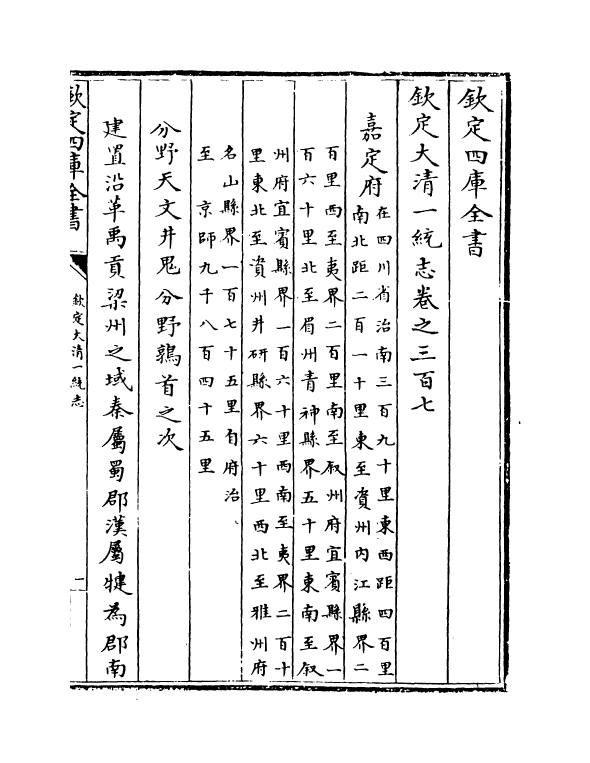 欽定四庫全書
欽定大清一統志卷之三百七
嘉定府
在四川省治南三百九十里東西距四百里
南北距二百一十里東至資州內江縣界二
百里西至夷界二百里南至叙州府宜賓縣界一
百六十里北至眉州青神縣界五十里東南至叙
州府宜賓縣界一百六十里西南至夷界二百十
里東北至資州井研縣界六十里西北至雅州府
名山縣界一百七十五里自府治
至 京師九千八百四十五里
分野天文井鬼分野鶉首之次
建置沿革禹貢梁州之域秦屬蜀郡漢屬犍為郡南
欽定四庫全書
欽定大清一統志